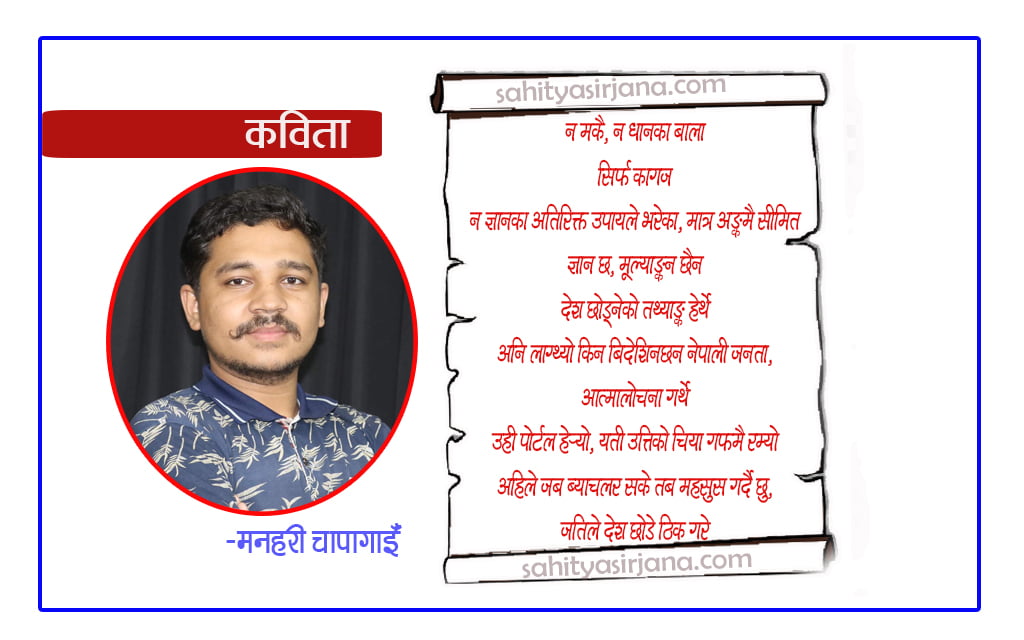 कविता
-मनहरी चापागाईं
sahityasirjana.com
न मकै, न धानका बाला
सिर्फ कागज
न ज्ञानका अतिरिक्त उपायले भरेका, मात्र अङ्कमै सीमित
ज्ञान छ, मूल्याङ्कन छैन
देश छोड्नेको तथ्याङ्क हेर्थे
अनि लाग्थ्यो किन बिदेशिनछन नेपाली जनता,
आत्मालोचना गर्थे
उही पोर्टल हेर्‍यो, यती उत्तिको चिया गफमै रम्यो
अहिले जब ब्याचलर सके तब महसुस गर्दै छु,
जतिले देश छोडे ठिक गरे
sahityasirjana.com